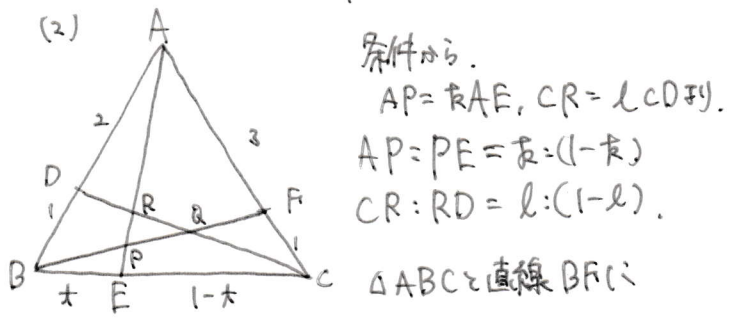 (2)
A
2
3
D
R
Q
F
1
1
P
B
t
E
1-t
C
条件から.
AP=kAE, CR=lCDより.
AP=PE=k:(1-k)
CR:RD=l:(1-l).
△ABCと直線BFに